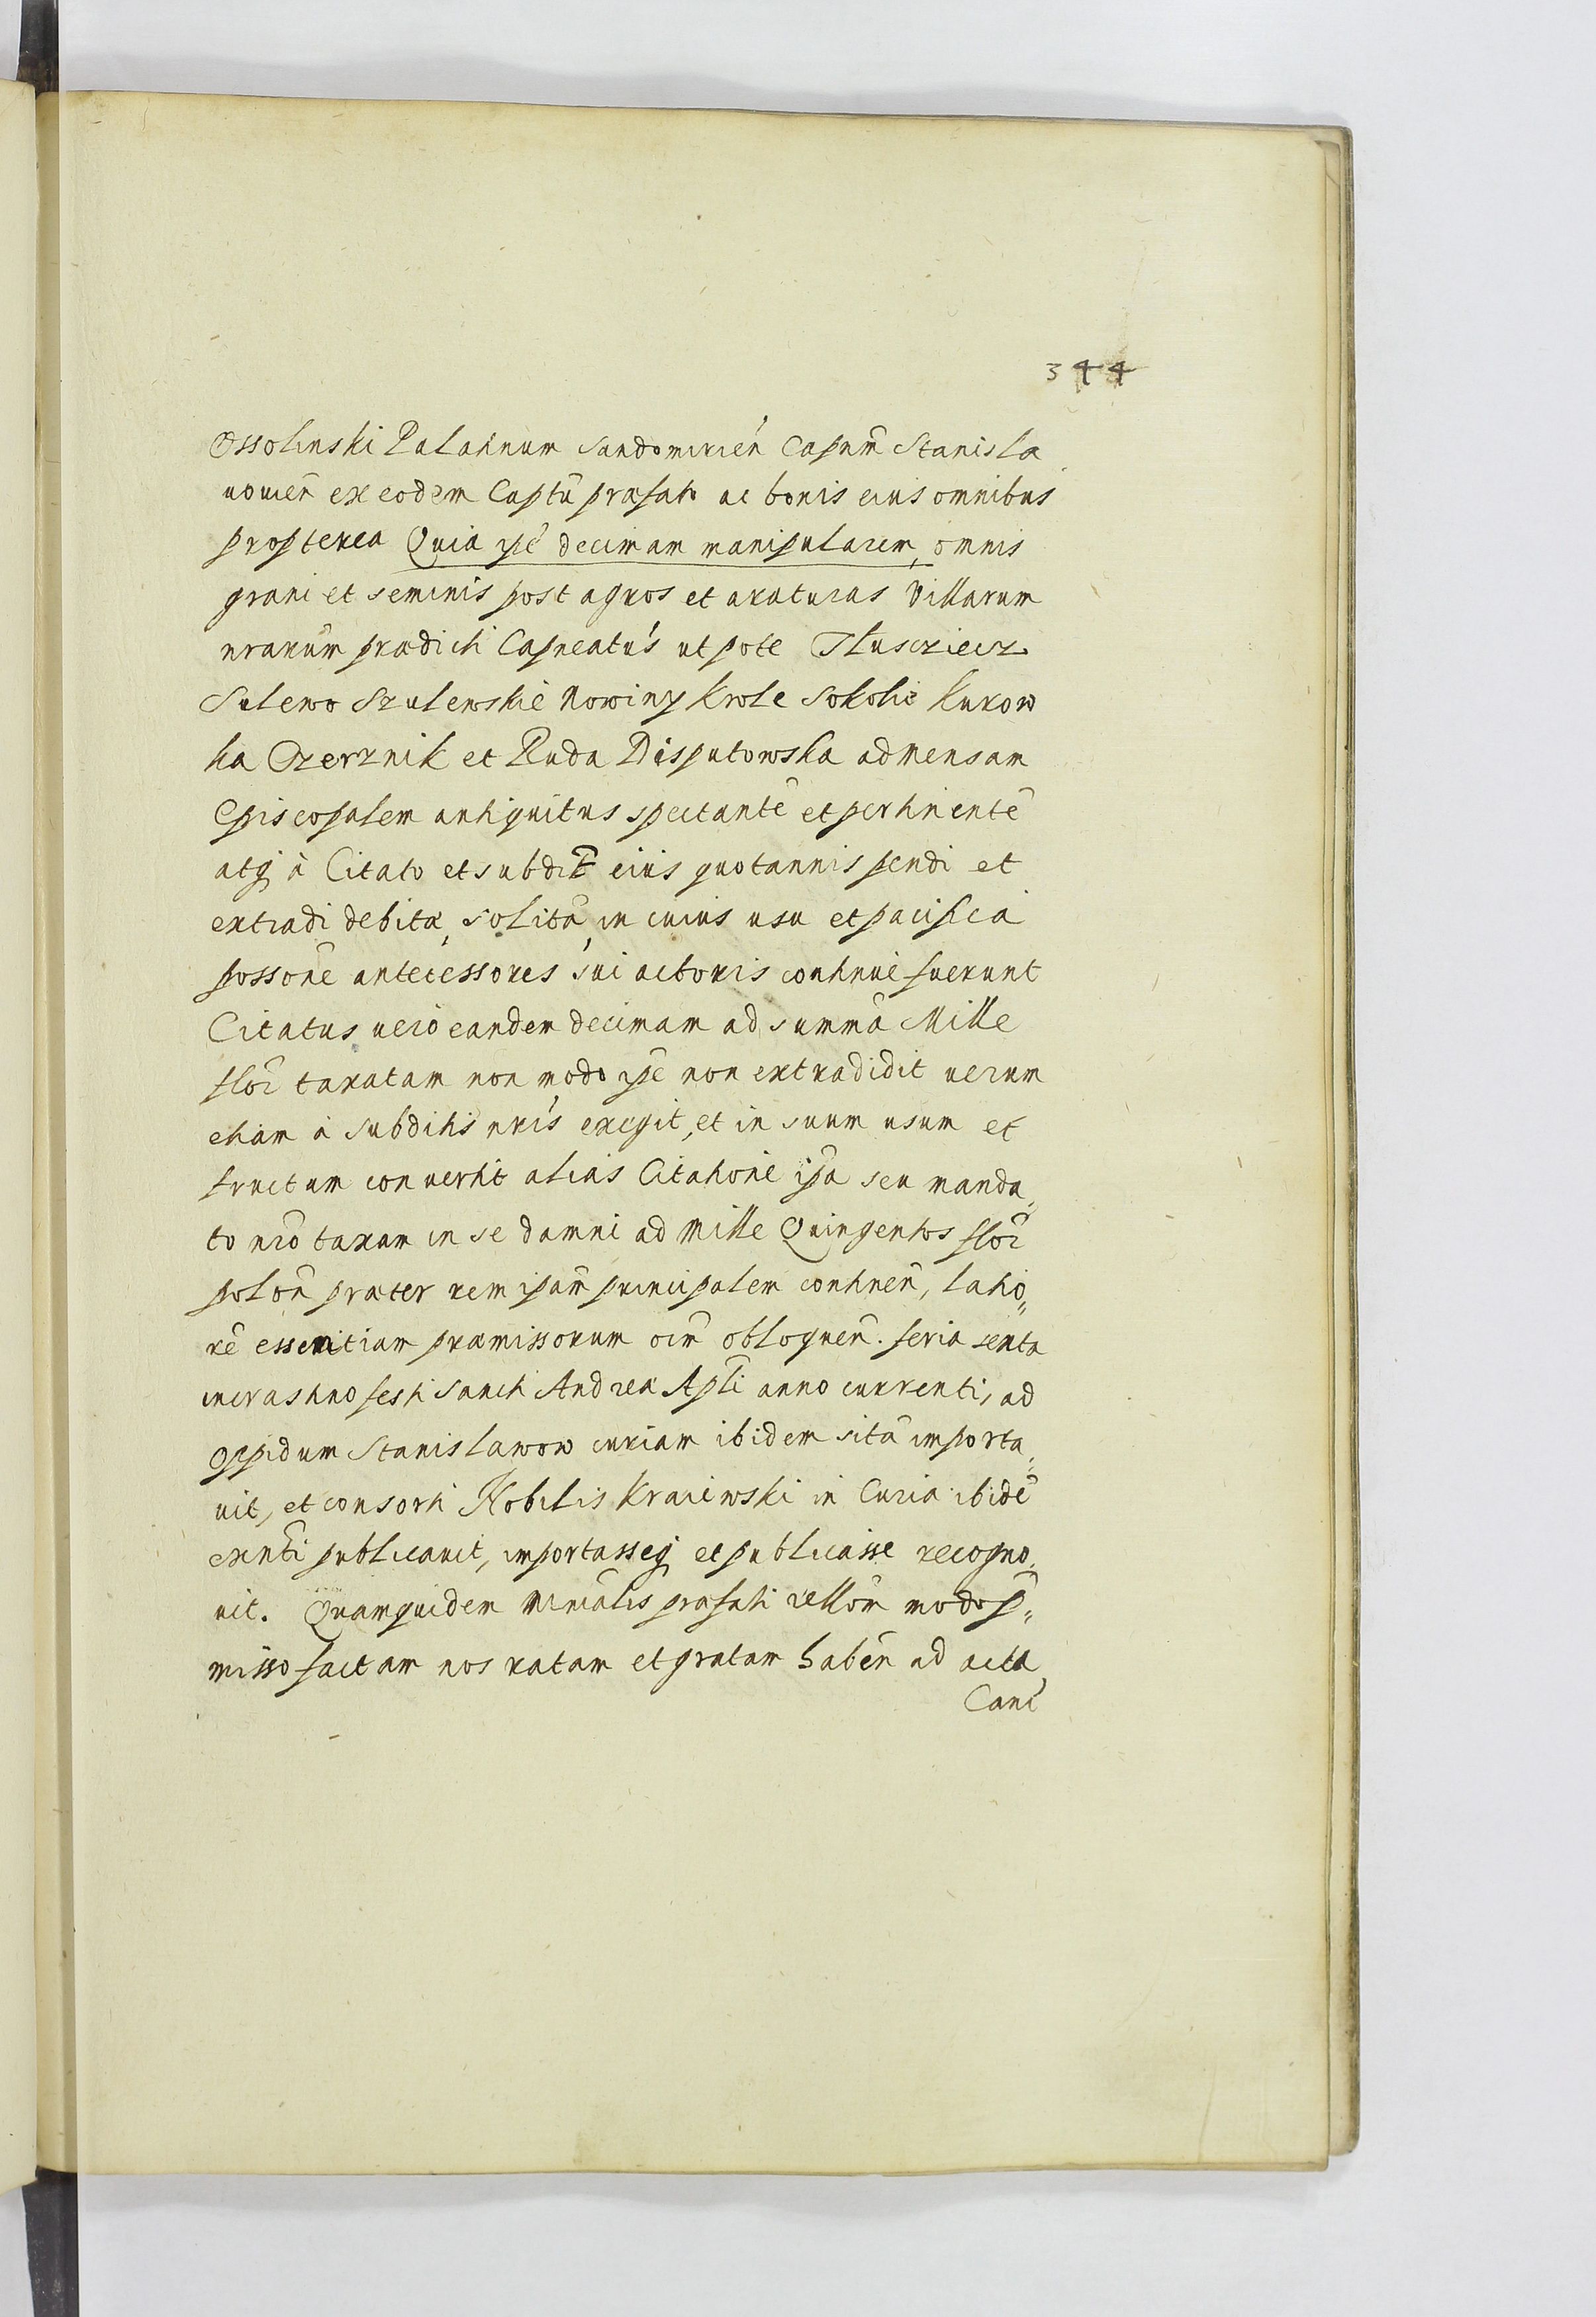 344
Ossolinski Palatinum Sandomirień Capnm̃ Stanisla
uouień ex eodem Captũ præfato ac bonis eius omnibus
propterea Quia ipē decimam manipularem, omnis
grani et seminis post agros et araturas Villarum
nrarum prædicti Capneatus ut pote Tłuscziecz
Sulewo Szulewskie Nowiny Krole Sokolie Kurow
ka Czerznik et Ruda Disputowska ad Mensam
Episcopalem antiquitus spectantẽ et pertinentẽ
atq à Citato et subdit̃ eius quotannis pendi et
extradi debitã, solitã, in cuius usu et pacifica
possone antecessores sui actoris continue fuerunt
Citatus uero eandem decimam ad summã Mille
flor̃ taxatam non modo ipē non extradidit uerum
etiam à subditis nris exegit, et in suum usum et
fructum conuertit alias Citatione ipã seu manda,
to nrõ taxam in se damni ad Mille Quingentos flor̃
polon̄ præter rem ipam̃ principalem continen̄, latio„
rē essentiam præmissorum oim̄ obloquen̄. feria sexta
in crastino festi Sancti Andreæ Apli anno currenti, ad
oppidum Stanislawow curiam ibidem sitã importa„
uit, et consorti Nobilis Kraiewski in Curia ibidẽ
exnti publicauit, importasseq et publicasse recogno„
uit. Quamquidem Minialis præfati rellom̃ modo p̃„
misso factam nos ratam et gratam haben̄ ad acta
Canc